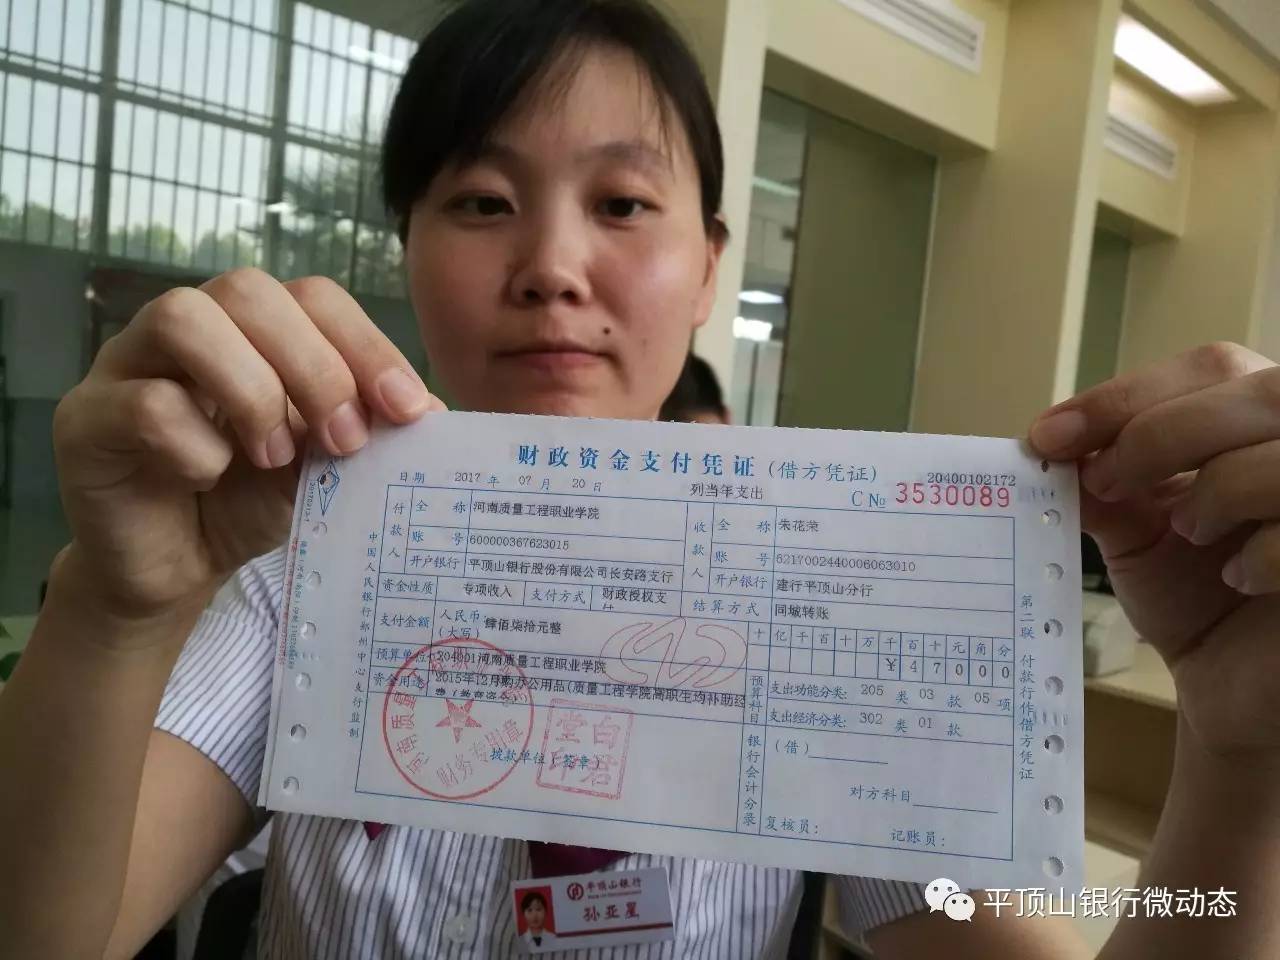 财政资金支付凭证(借方凭证)
20400102172
日期 2017 年 07 月 20 日 列当年支出 C № 3530089
付款人 全称 河南质量工程职业学院 收款人 全称 朱花荣
账号 600000367623015 账号 6217002440006063010
开户银行 平顶山银行股份有限公司长安路支行 开户银行 建行平顶山分行
资金性质 专项收入 支付方式 财政授权支付 结算方式 同城转账
支付金额 人民币:(大写) 肆佰柒拾元整 十亿千百十万千百十元角分
¥47000
预算单位 204001河南质量工程职业学院
资金用途 2015年12月购办公用品(质量工程学院高职生均补助经费(教育资金
预算科目 支出功能分类: 205 类 03 款 05 项
支出经济分类: 302 类 01 款
拨款单位(签章)
银行会计分录 (借)
对方科目
复核员: 记账员:
河南质量工程职业学院
财务专用章
白君堂印
中国人民银行郑州中心支行监制
第二联 付款行作借方凭证
平顶山银行
孙亚星
平顶山银行微动态